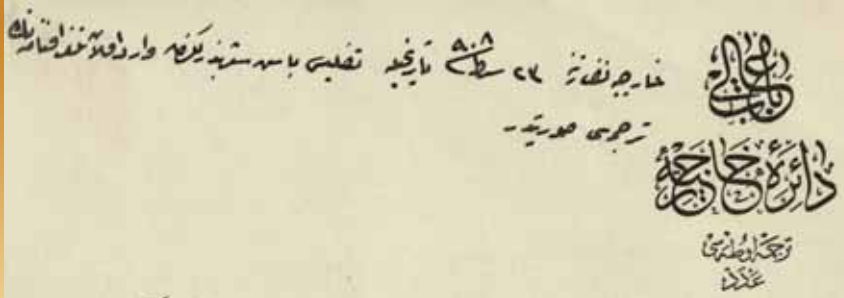 باب عالی
دائرهٔ خارجیه
ترجمه اوطه‌سی
عدد
خارجیه نظارتنه ٢٣ ٩٠٨ تاریخیله تفلیس باش شهبندرلکندن وارد اولان تلغرافنامه‌نك
ترجمه‌سی صورتیدر